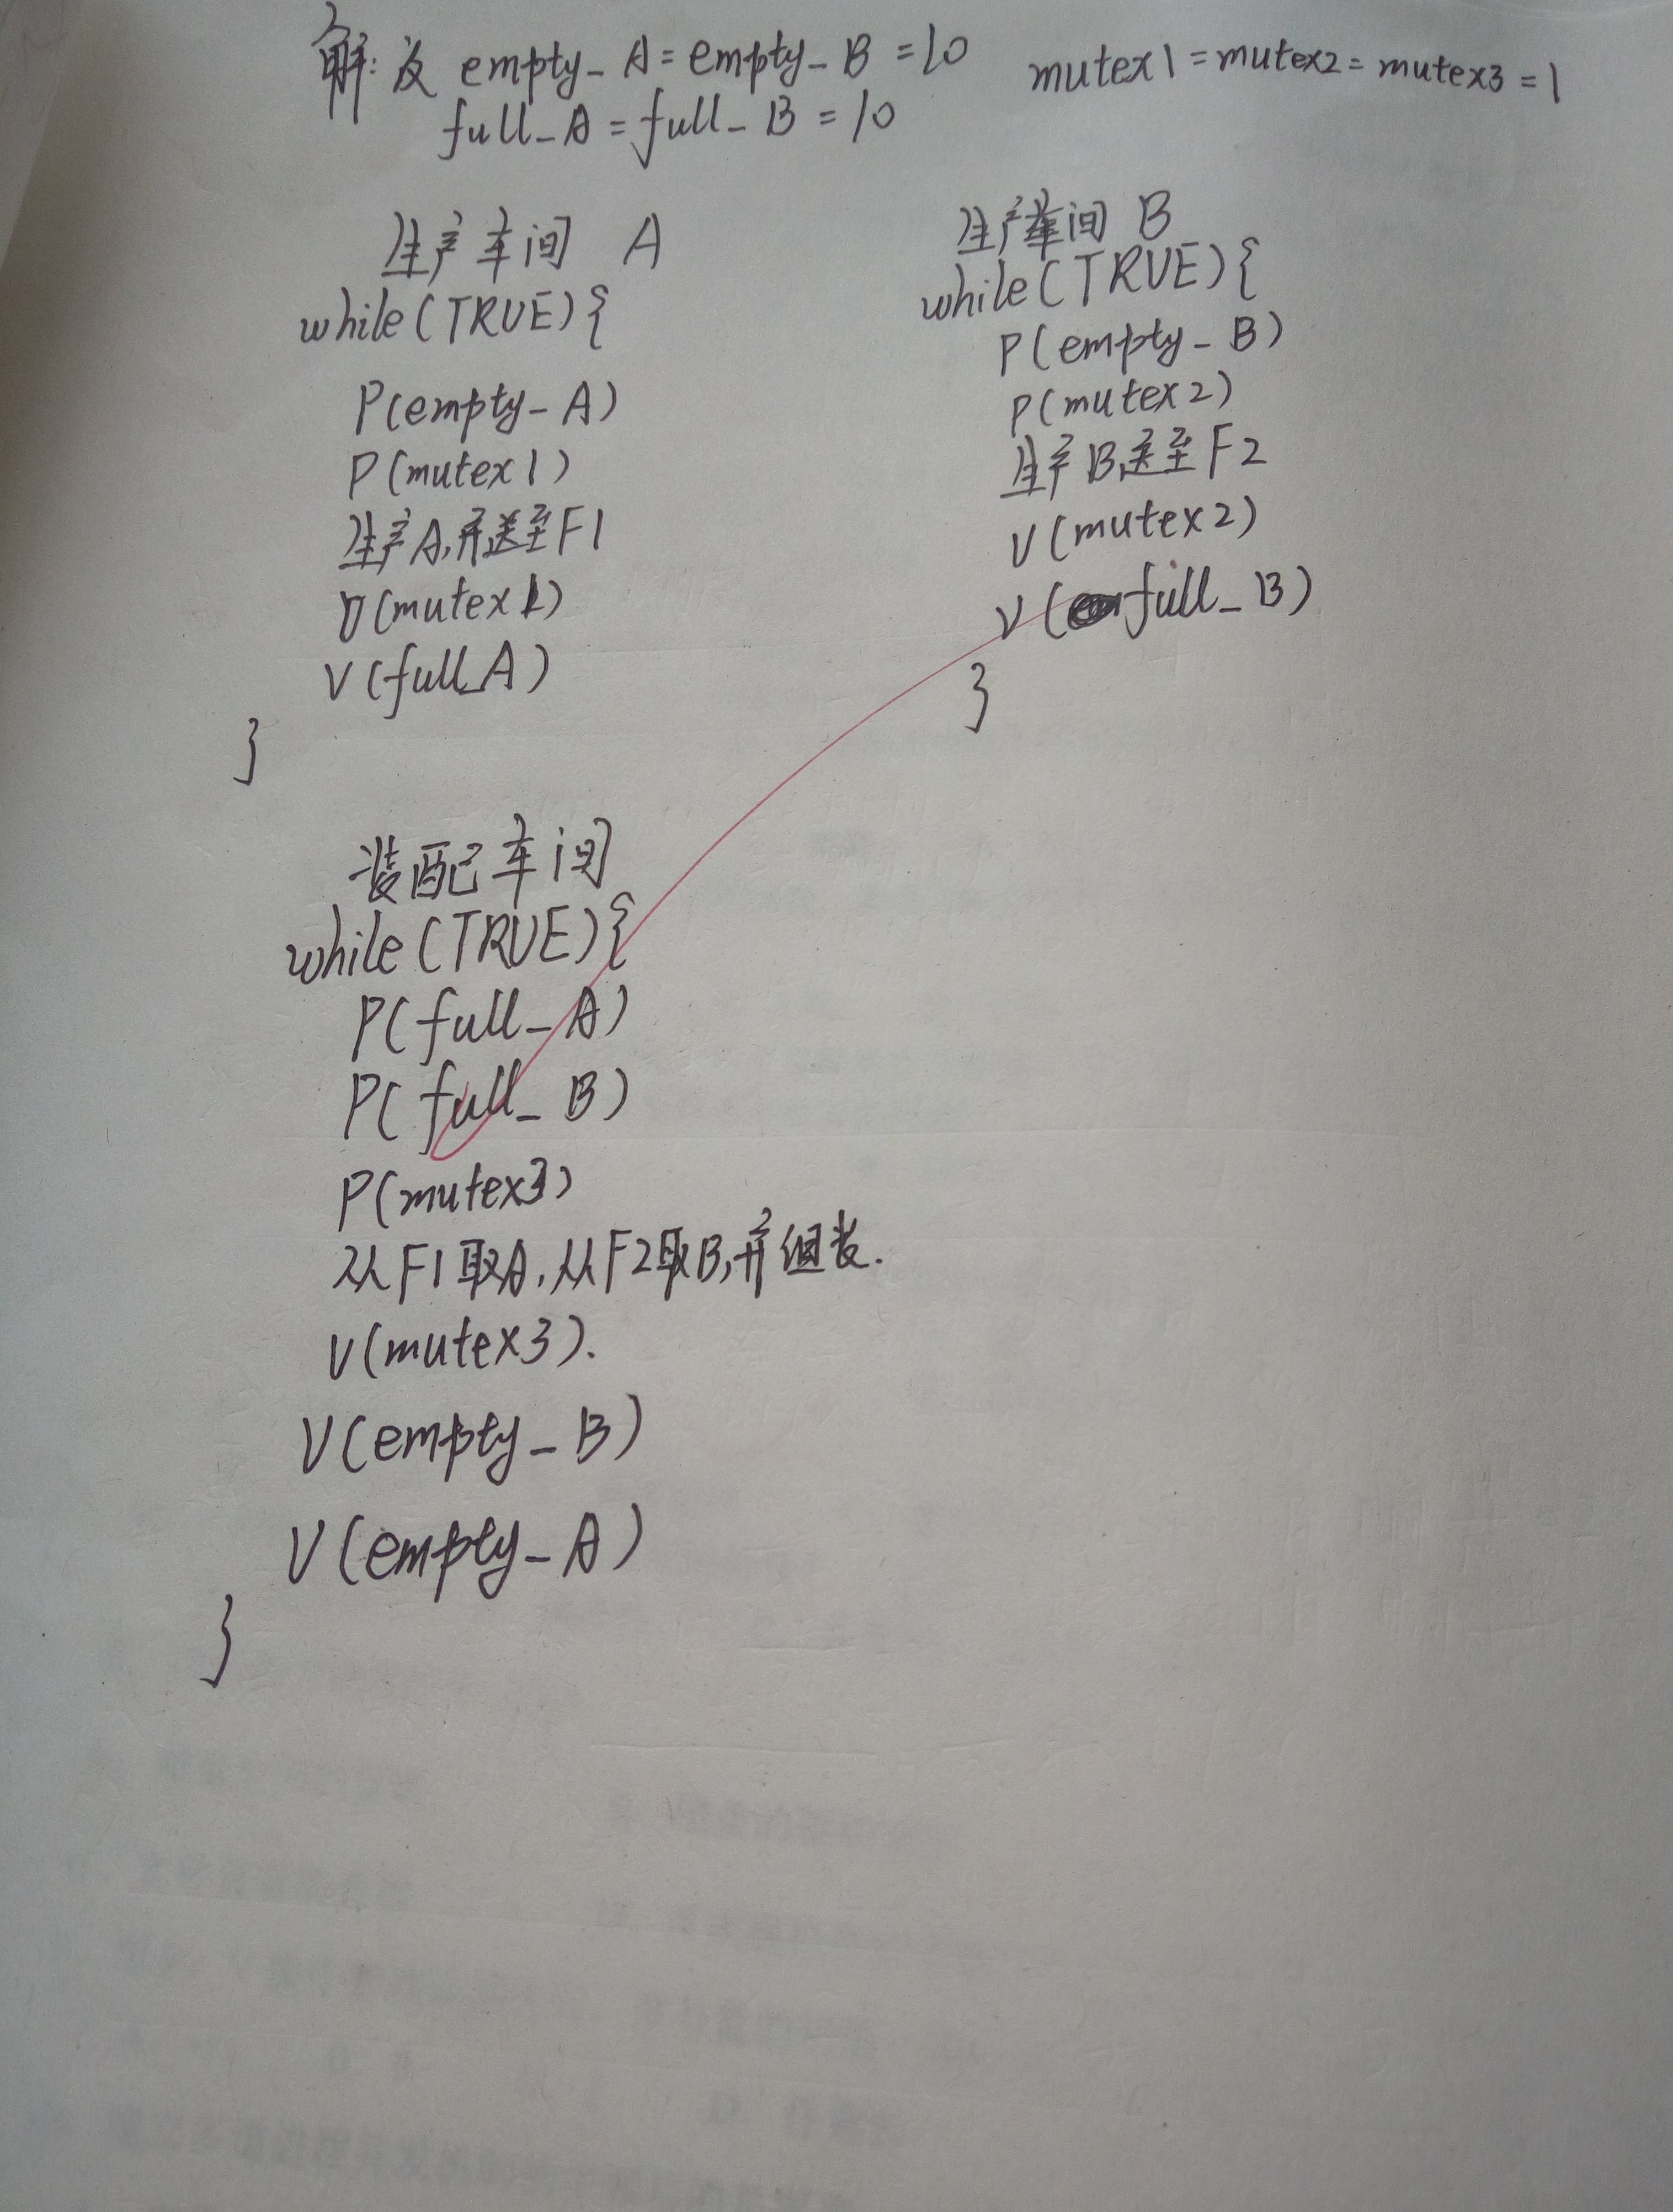 解: 设 empty_A = empty_B = 10 mutex1 = mutex2 = mutex3 = 1
full_A = full_B = 10
生产车间 A
while(TRUE){
P(empty_A)
P(mutex1)
生产A,并送至F1
V(mutex1)
V(full_A)
}
生产车间 B
while(TRUE){
P(empty_B)
P(mutex2)
生产B,送至F2
V(mutex2)
V(full_B)
}
装配车间
while(TRUE){
P(full_A)
P(full_B)
P(mutex3)
从F1取A,从F2取B,并组装.
V(mutex3).
V(empty_B)
V(empty_A)
}